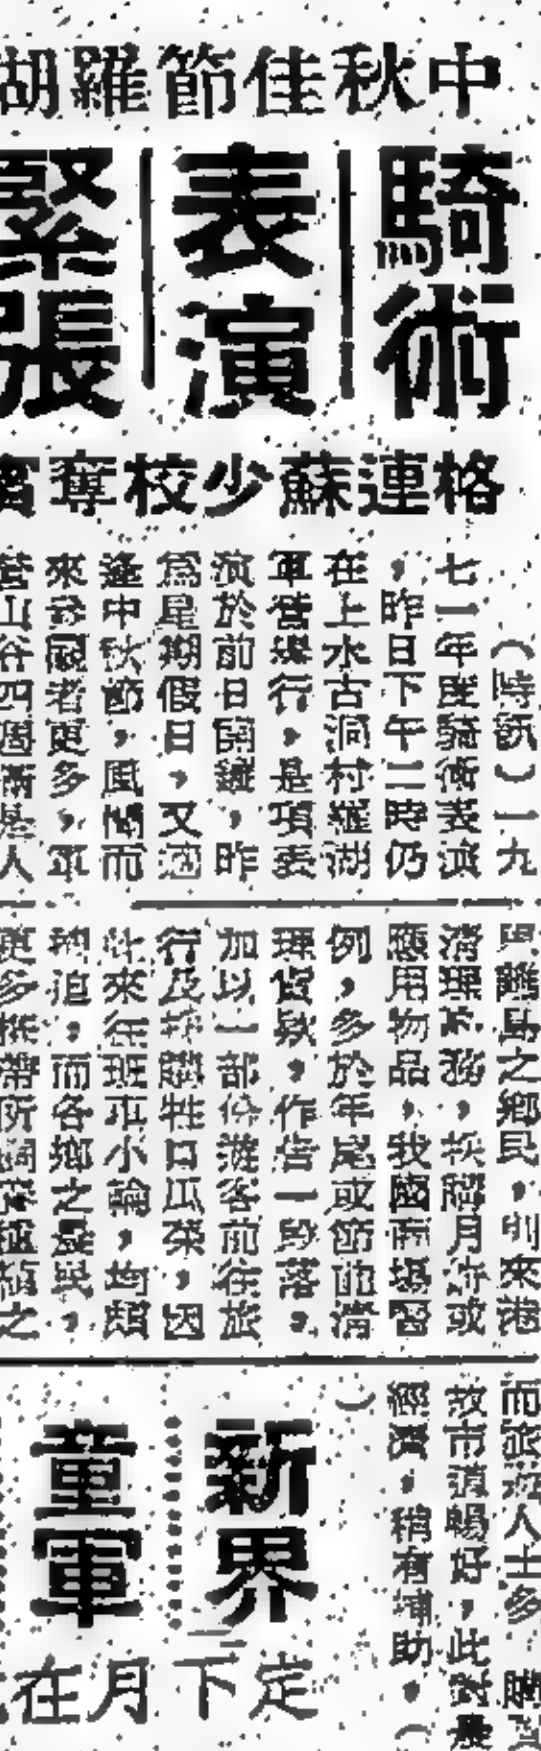 中秋佳節羅湖
騎術
表演
緊張
格連蘇少校奪
（時訊）一九
七一年度騎術表演
，昨日下午二時仍
在上水古洞村羅湖
軍營舉行，是項表
演於前日開鑼，昨
為星期假日，又適
逢中秋節，風閒而
來參觀者更多，軍
營山谷四週滿是人
離島之鄉民，則來港
清理賬務，採購月餅或
應用物品，我國商場習
例，多於年尾或節前清
理貨款，作告一段落。
加以一部份遊客前往旅
行及採購牲口瓜菜，因
此來往班市小輪，均頗
擠迫，而各鄉之農民，
更多攜帶所之
而旅遊人士多
故市道暢好，此對農
經濟，稍有補助。（
）
新界
童軍
定下月在